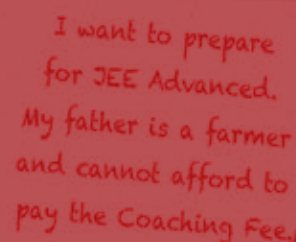 I want to prepare
for JEE Advanced.
My father is a farmer
and cannot afford to
pay the Coaching Fee.